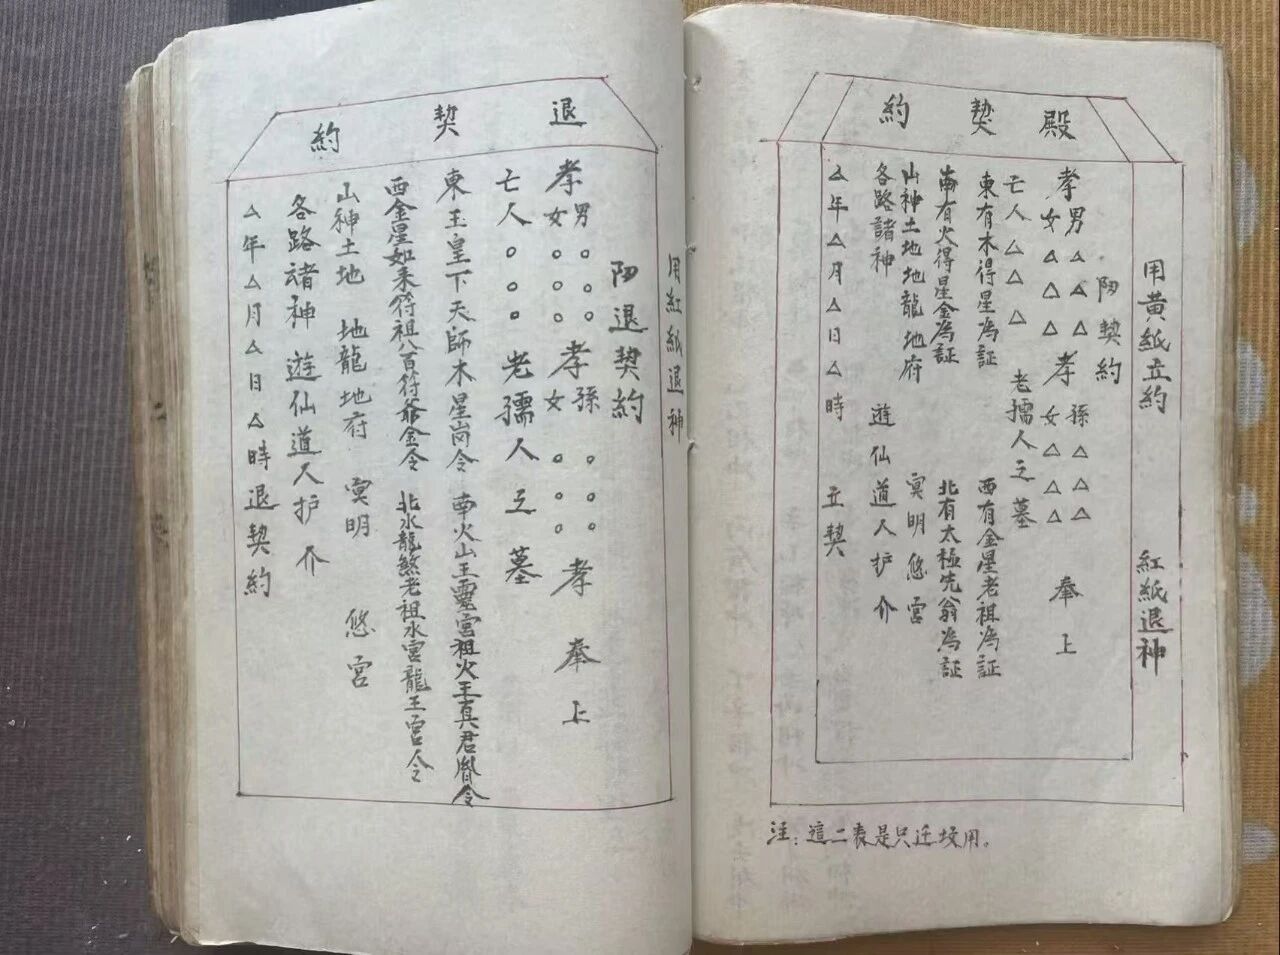 殿契約
用黃紙立約 紅紙退神
阳契約
孝男△△△孝孫△△△
女△△△女△△△奉上
亡人△△△老孺人之墓
東有木得星為証 西有金星老祖為証
南有火得星金為証 北有太極先翁為証
山神土地地龍地府 冥明悠宮
各路諸神 遊仙道人护介
△年△月△日△時 立契
注：這二表是只迁坟用。
退契約
用紅紙退神
阳退契約
孝男○○○孝孫○○○孝奉上
女○○○女○○○
亡人○○○老孺人之墓
東玉皇下天師木星岗令 南火山王靈宮祖火王真君胤令
西金星如来符祖八百符爺金令 北水龍煞老祖水宮龍王宮令
山神土地 地龍地府 冥明 悠宮
各路诸神 遊仙道人护介
△年△月△日△時退契約